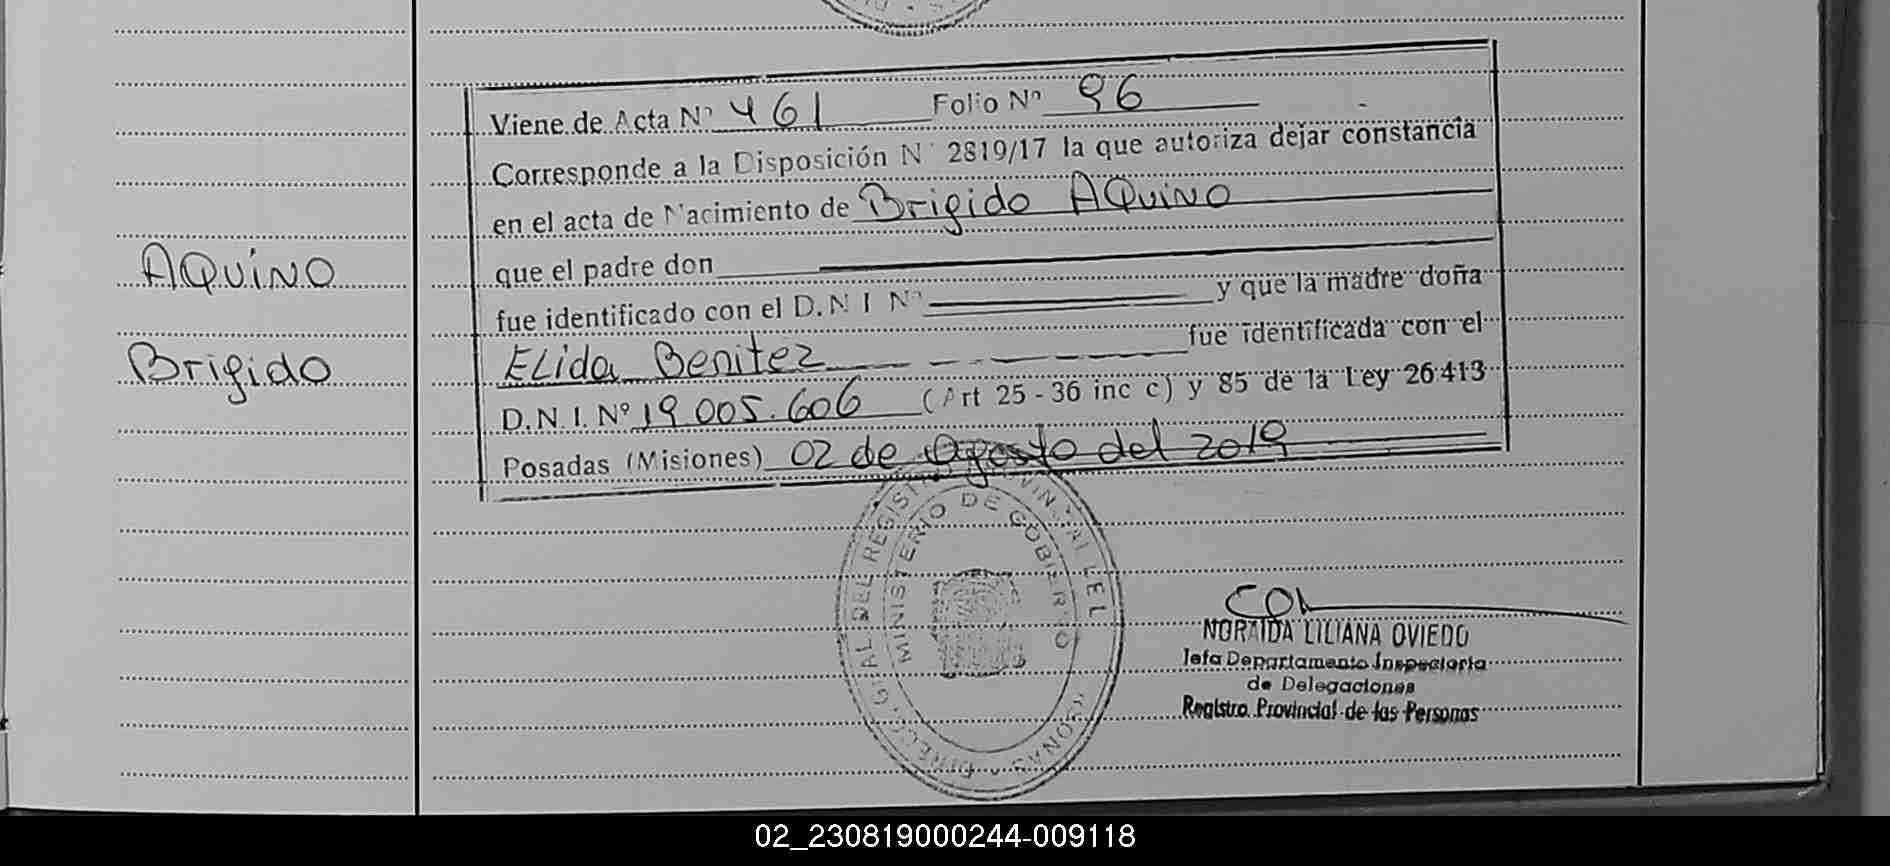 Viene de Acta Nº 461 Folio Nº 96
Corresponde a la Disposición Nº 2819/17 la que autoriza dejar constancia
en el acta de Nacimiento de Brigido AQuino
AQuiNO
que el padre don
fue identificado con el D.N I Nº y que la madre doña
Brigido
ELida Benitez fue identificada con el
D.N.I. Nº 19 005.606 (Art 25 - 36 inc c) y 85 de la Ley 26413
Posadas (Misiones) 02 de agosto del 2019
MINISTERIO DE GOBIERNO
NORAIDA LILIANA OVIEDO
Jefa Departamento Inspectoria
de Delegaciones
Registro Provincial de las Personas
02_230819000244-009118